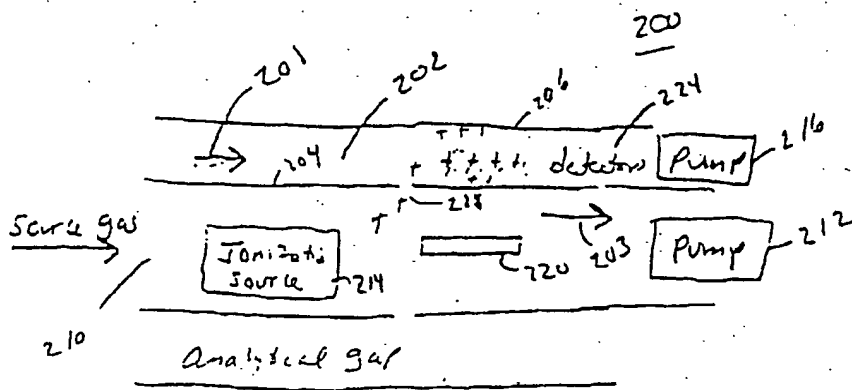 200
201
202
206
224
204
detectors
Pump
216
Source gas
228
Ionizatio
Source
214
220
203
Pump
212
210
Analytical gas